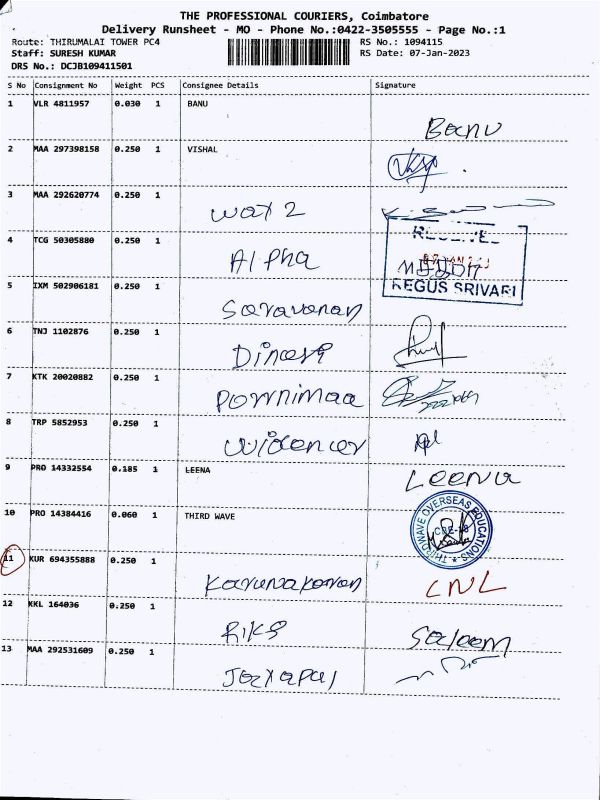 THE PROFESSIONAL COURIERS, Coimbatore
Delivery Runsheet - MO - Phone No.:0422-3505555 - Page No.:1
Route: THIRUMALAI TOWER PC4 RS No.: 1094115
Staff: SURESH KUMAR RS Date: 07-Jan-2023
DRS No.: DCJB109411501
S No Consignment No Weight PCS Consignee Details Signature
1 VLR 4811957 0.030 1 BANU
Banu
2 MAA 297398158 0.250 1 VISHAL
3 MAA 292620774 0.250 1
way 2
RECEIVED
4 TCG 50305880 0.250 1
Alpha
REGUS SRIVARI
5 IXM 502906181 0.250 1
Saravanan
6 TNJ 1102876 0.250 1
7 KTK 20020882 0.250 1
Pownimaa
8 TRP 5852953 0.250 1
9 PRO 14332554 0.185 1 LEENA
Leena
10 PRO 14384416 0.060 1 THIRD WAVE
THIRDWAVE OVERSEAS EDUCATIONS
CBE-18
11 KUR 694355888 0.250 1
Karunakaran LNL
12 KKL 164036 0.250 1
Saleem
13 MAA 292531609 0.250 1